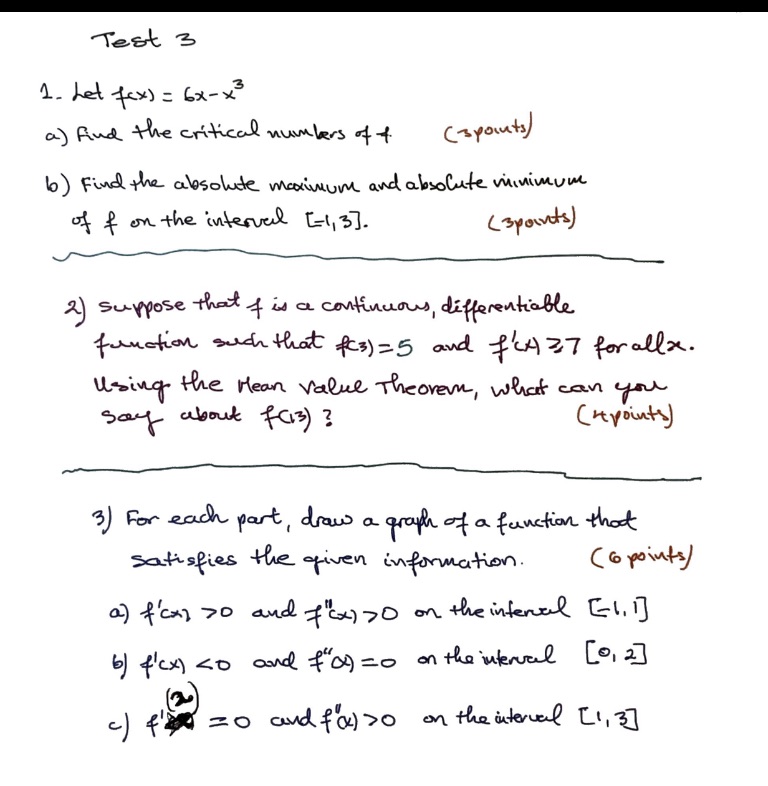 Test 3
1. Let f(x) = 6x-x³
a) Find the critical numbers of f. (3 points)
b) Find the absolute maximum and absolute minimum
of f on the interval [-1,3]. (3 points)
2) suppose that f is a continuous, differentiable
function such that f(3)=5 and f'(x) ≥7 for all x.
Using the Mean Value Theorem, what can you
say about f(13)? (4 points)
3) For each part, draw a graph of a function that
satisfies the given information. (6 points)
a) f'(x) >0 and f"(x) >0 on the interval [-1,1]
b) f'(x) <0 and f"(x) =0 on the interval [0,2]
c) f'(2) =0 and f"(x) >0 on the interval [1,3]